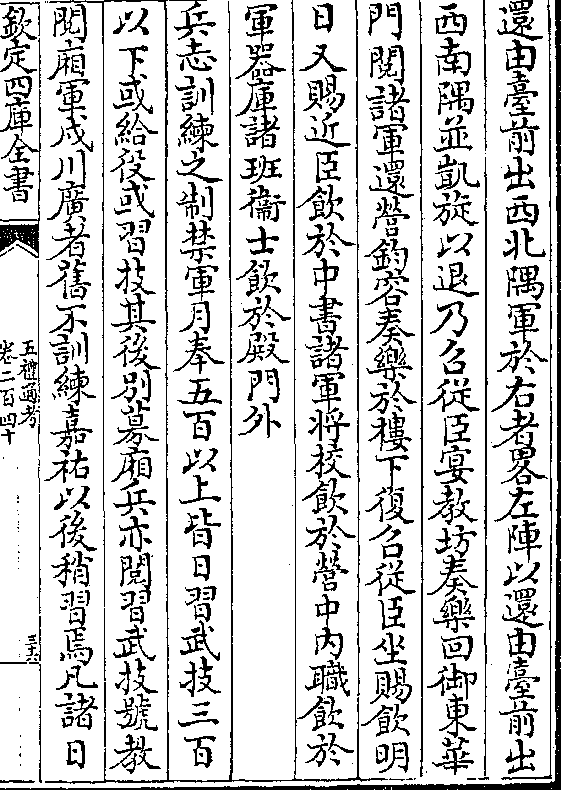 還由臺前出西北隅軍於右者畧左陣以還由臺前出
西南隅並凱旋以退乃召從臣宴教坊奏樂回御東華
門閲諸軍還營鈞容奏樂於樓下復召從臣坐賜飲明
日又賜近臣飲於中書諸軍將校飲於營中内職飲於
軍器庫諸班衞士飲於殿門外
兵志訓練之制禁軍月奉五百以上皆日習武技三百
以下或給役或習技其後别募廂兵亦閲習武技號教
閲廂軍戍川廣者舊不訓練嘉祐以後稍習焉凡諸日
欽定四庫全書
五禮通考
卷二百四十
三六